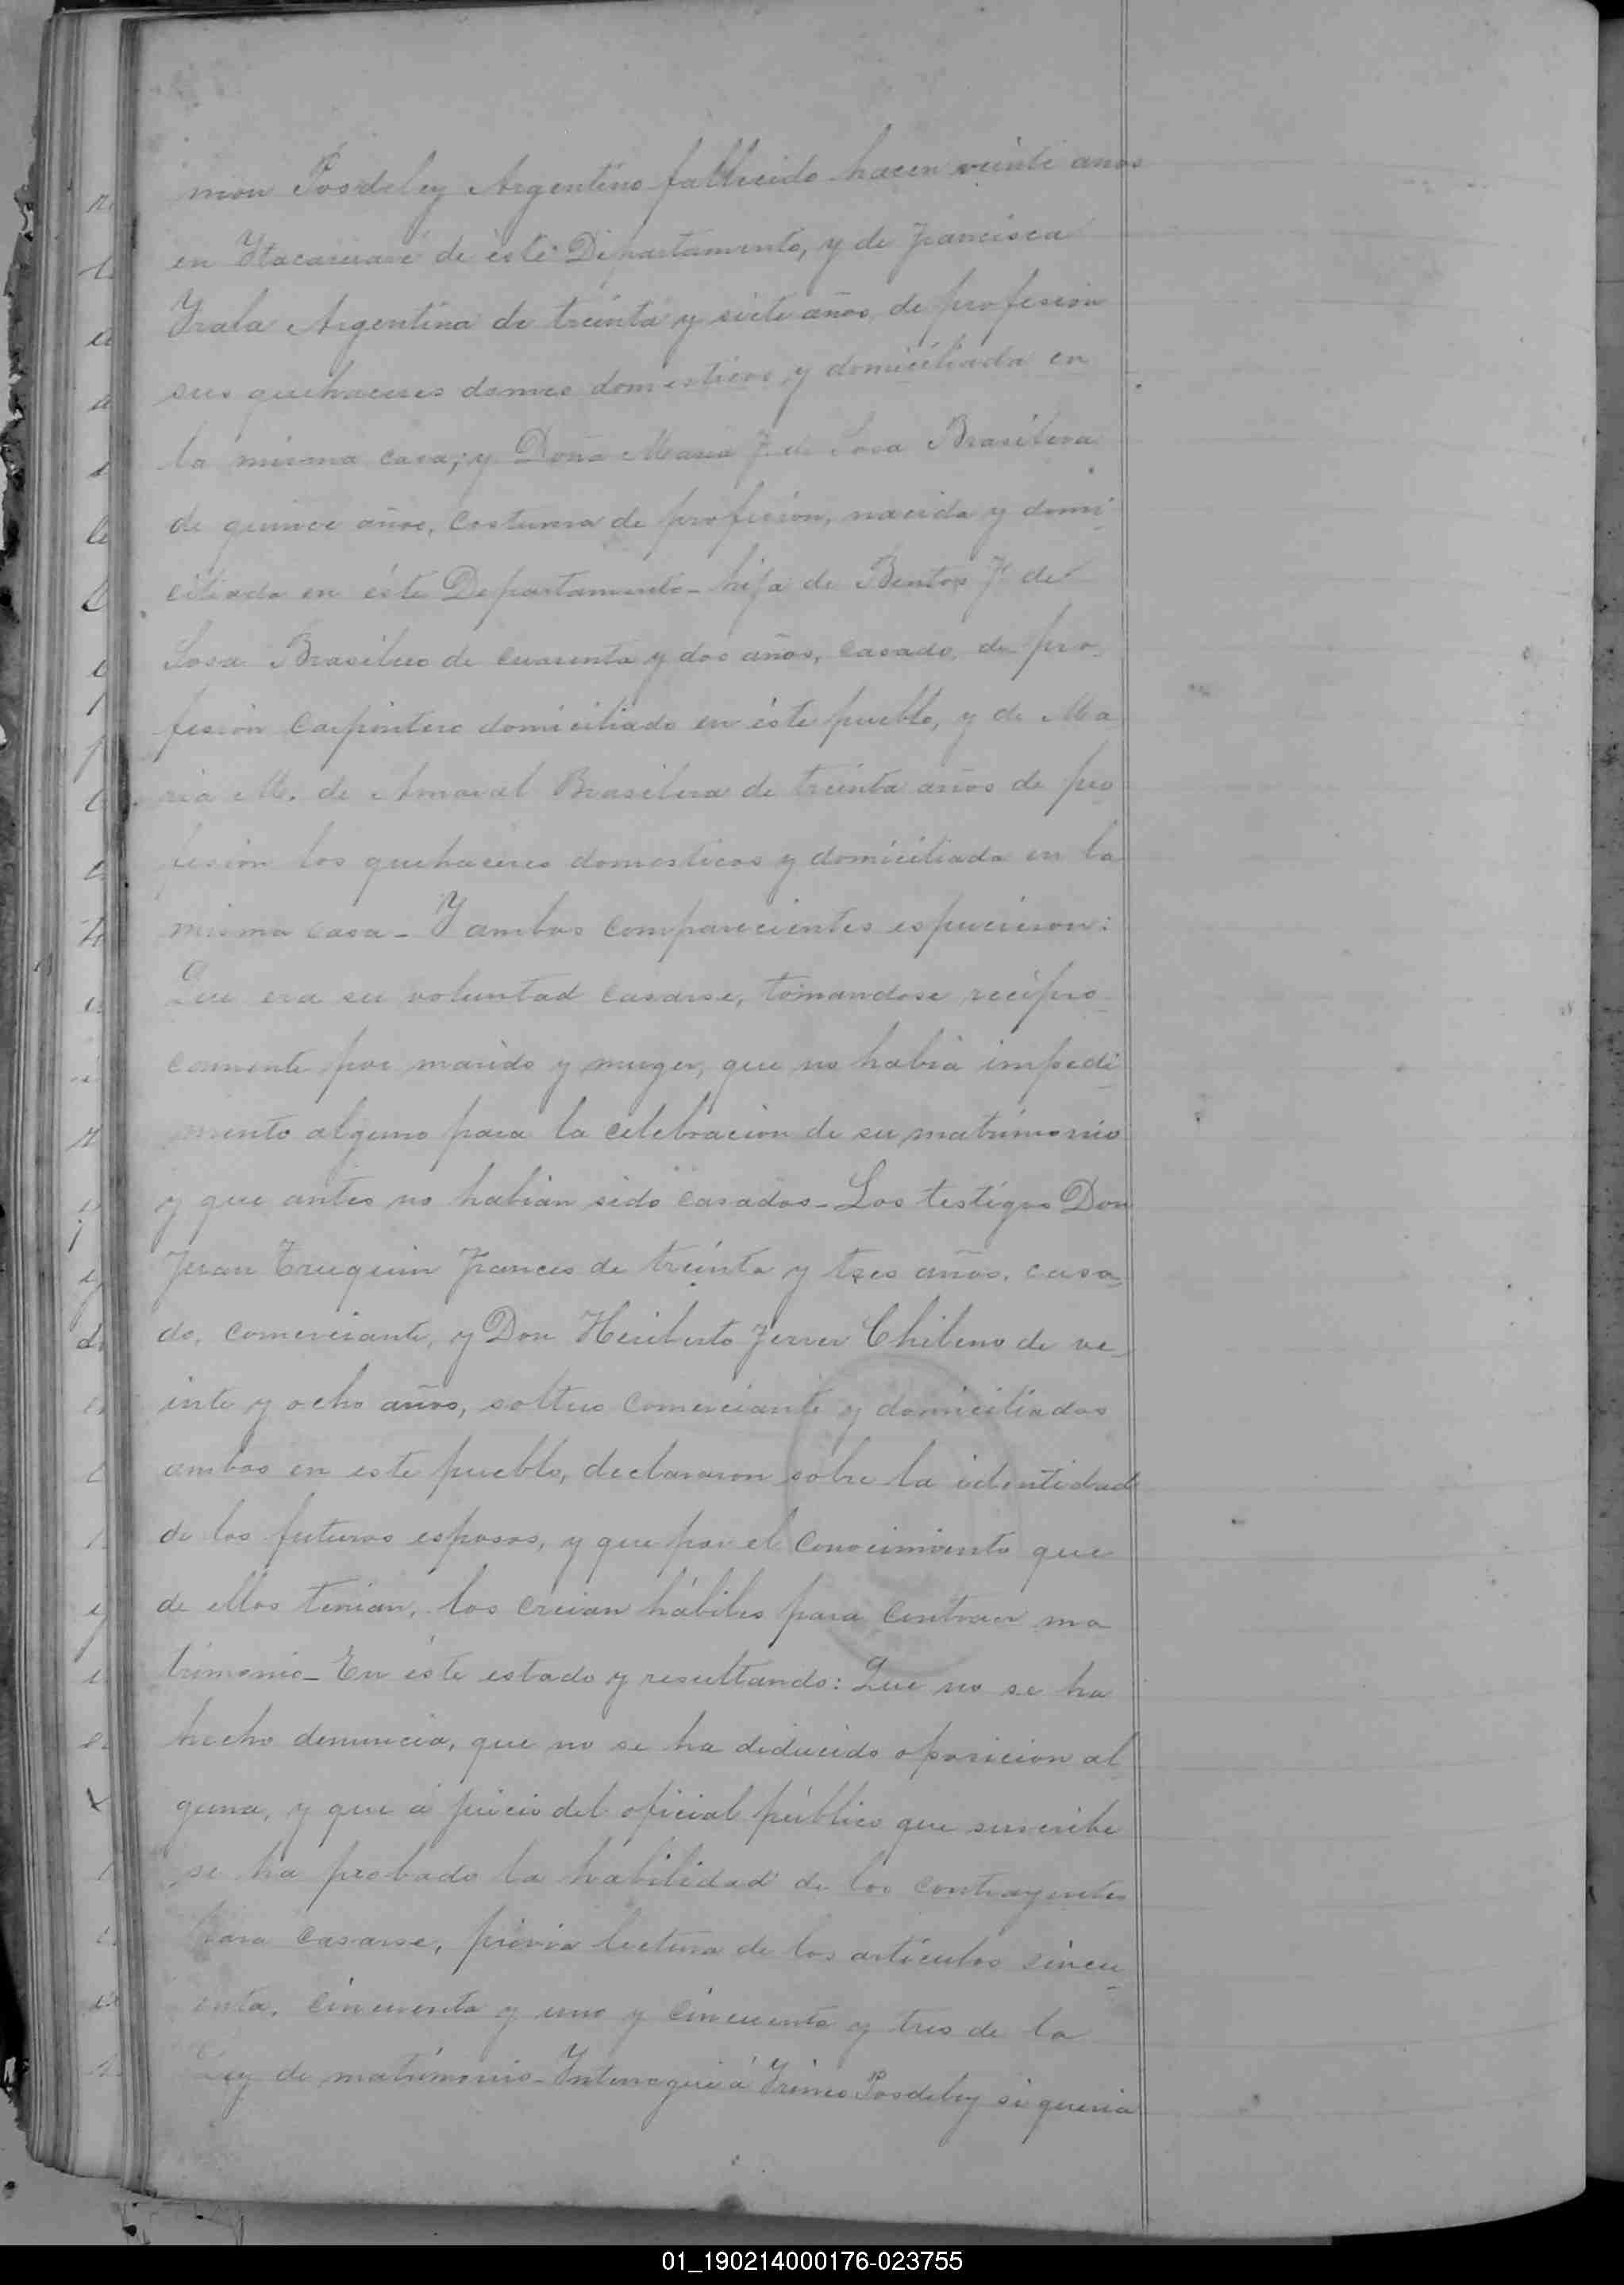 mon Posdeley Argentino fallecido hacen veinte anos
en Ytacaruaré de éste Departamento, y de Francisca
Yrala Argentina de treinta y siete años, de profesion
sus quehaceres domes domesticos y domiciliada en
la misma casa; y Doña Maria F. de Sosa Brasilera
de quince años, Costurera de profesion, nacida y domi-
ciliada en éste Departamento - hija de Bentos F. de
Sosa Brasilero de cuarenta y dos años, casado, de pro-
fesion Carpintero domiciliado en éste pueblo, y de Ma
ria M. de Amaral Brasilera de treinta años de pro
fesion los quehaceres domesticos y domiciliada en la
misma casa - Y ambos comparecientes espucieron:
Que era su voluntad casarse, tomandose recipro-
camente por marido y muger, que no habia impedi-
mento alguno para la celebracion de su matrimonio
y que antes no habian sido casados - Los testigos Don
Juan Truquin Frances de treinta y tres años, casa-
do, comerciante, y Don Heriberto Ferrer Chileno de ve-
inte y ocho años, soltero comerciante y domiciliados
ambos en este pueblo, declararon sobre la identidad
de los futuros esposos, y que por el conocimiento que
de ellos tenian, los creian hábiles para contraer ma
trimonio - En éste estado y resultando: Que no se ha
hecho denuncia, que no se ha deducido oposicion al
guna, y que á juicio del oficial público que suscribe
se ha probado la habilidad de los contrayentes
para casarse, prévia lectura de los artículos sincu-
enta, cincuenta y uno y cincuenta y tres de la
Ley de matrimonio - Interrogué á Irineo Posdeley si queria
01_190214000176-023755